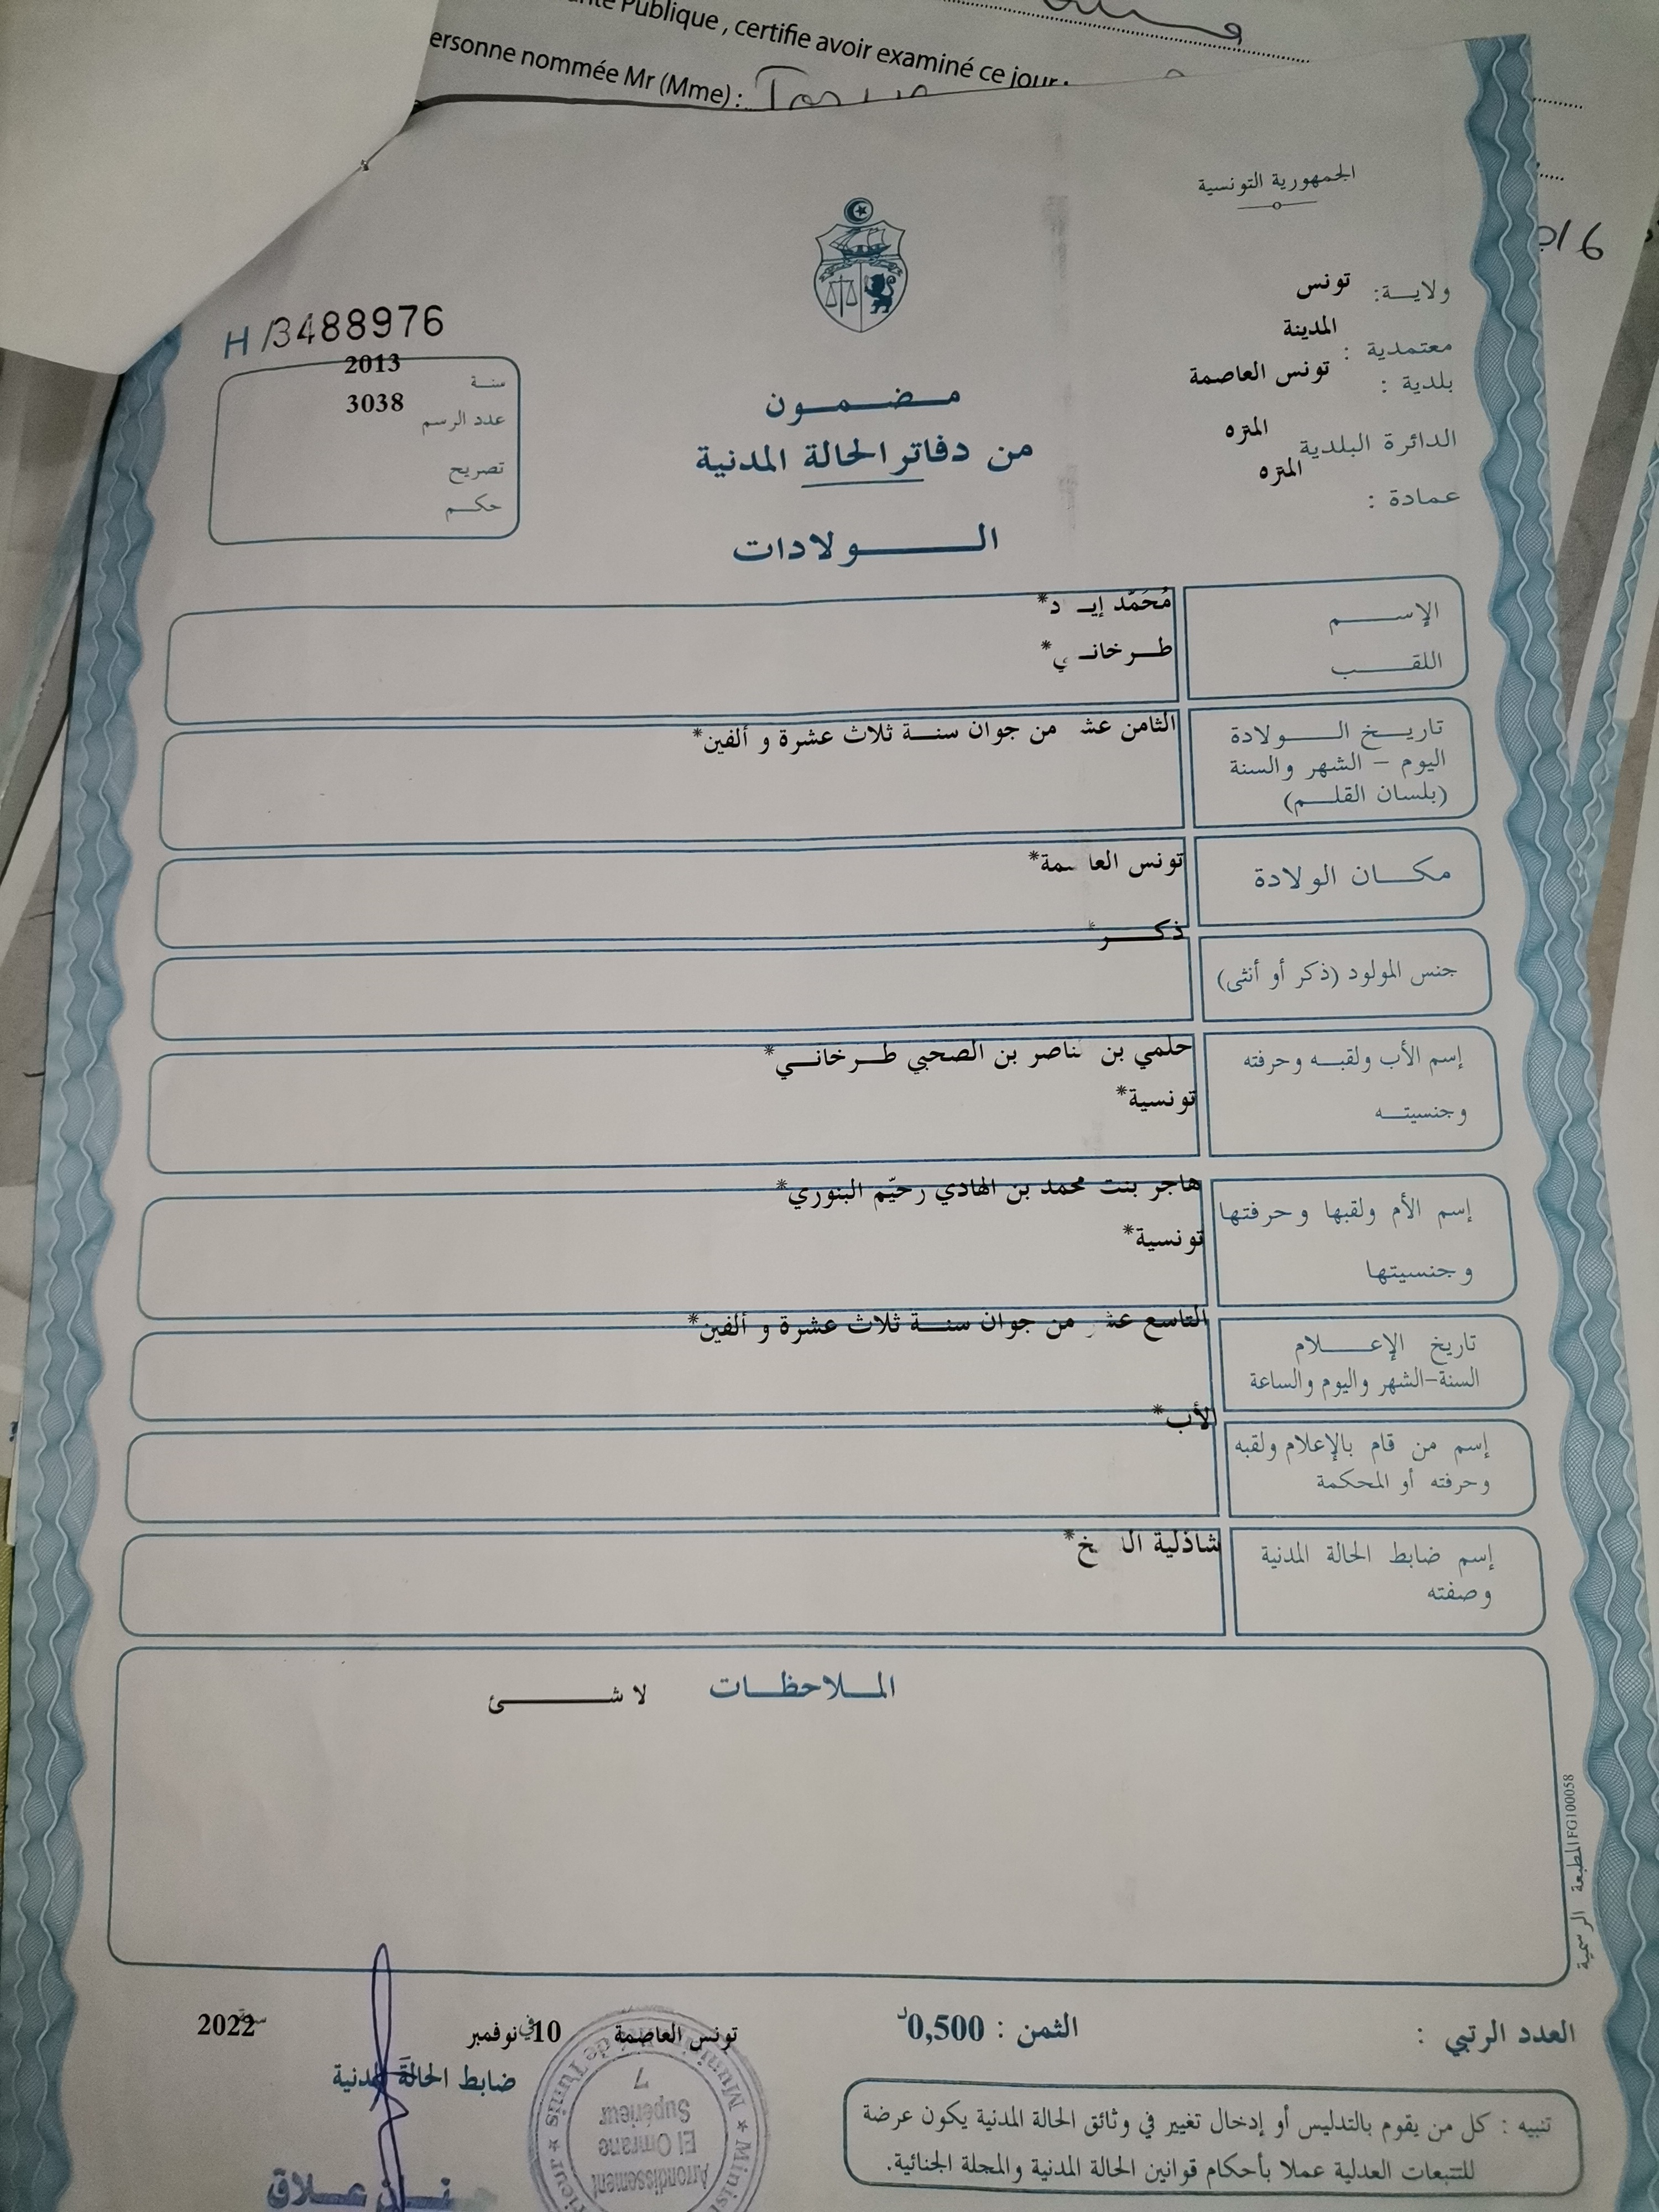 Publique , certifie avoir examiné ce jour :
ersonne nommée Mr (Mme) :
الجمهورية التونسية
ولايـــة: تونس
معتمدية : المدينة
بلدية : تونس العاصمة
الدائرة البلدية المنزه
عمادة : المنزه
H/3488976
سنـة 2013
عدد الرسم 3038
تصريح
حكـم
مـضـمـون
من دفاتر الحالة المدنية
الـــولادات
الإســـم مُحَمّد إيـ د*
اللقـــب طـرخانـي*
تاريــخ الـــولادة الثامن عشـ من جوان سنـة ثلاث عشرة و ألفين*
اليوم – الشهر والسنة
(بلسان القلـم)
مكـــان الولادة تونس العا ـمة*
جنس المولود (ذكر أو أنثى) ذكـــر*
إسم الأب ولقبـه وحرفته حلمي بن لناصر بن الصحبي طـرخانـي*
وجنسيتـه تونسية*
إسم الأم ولقبها وحرفتها هاجر بنت محمد بن الهادي رحيّم البنوري*
وجنسيتها تونسية*
تاريخ الإعـــلام التاسع عشـ من جوان سنـة ثلاث عشرة و ألفين*
السنة-الشهر واليوم والساعة
إسم من قام بالإعلام ولقبه الأب*
وحرفته أو المحكمة
إسم ضابط الحالة المدنية شاذلية الـ ـخ*
وصفته
المـلاحظـات لا شـــئ
المطبعة الرسمية FG100058
العدد الرتبي :
الثمن : 0,500د
تونس العاصمة في 10 نوفمبر سنة 2022
ضابط الحالة المدنية
تنبيه : كل من يقوم بالتدليس أو إدخال تغيير في وثائق الحالة المدنية يكون عرضة
للتتبعات العدلية عملا بأحكام قوانين الحالة المدنية والمجلة الجنائية.
Municipalité de Tunis
Arrondissement
El Omrane
Supérieur
7
عـلاق